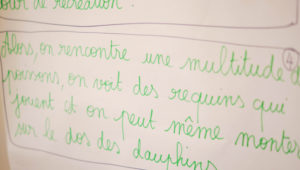 cour de récréation.
④
Alors, on rencontre une multitude de
poissons, on voit des requins qui
jouent et on peut même monter
sur le dos des dauphins